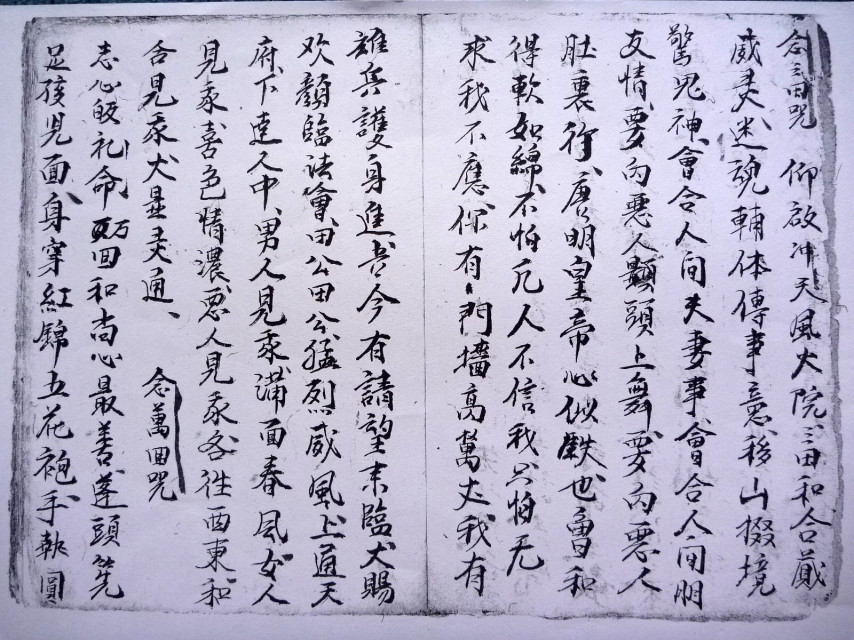 念三田咒 仰啟冲天風火院三田和合藏
威灵迷魂輔体傳事意移山掇境
驚鬼神會合人间夫妻事會合人间朋
友情要内惡人顯頭上舞要内惡人
肚裏行唐明皇帝心似鉄也會和
得軟如綿不怕凡人不信我只怕凡
求我不應你有門墻高萬丈我有
雄兵護身進言今有請望来臨大賜
欢顏臨法會田公田公猛烈威風上通天
府下達人中男人見我滿面春風女人
見我喜色情濃惡人見我各往西東和
合見我大显灵通 念萬回咒
志心皈礼命万回和尚心最善蓬頭
足孩児面身穿紅錦五花袍手執圓